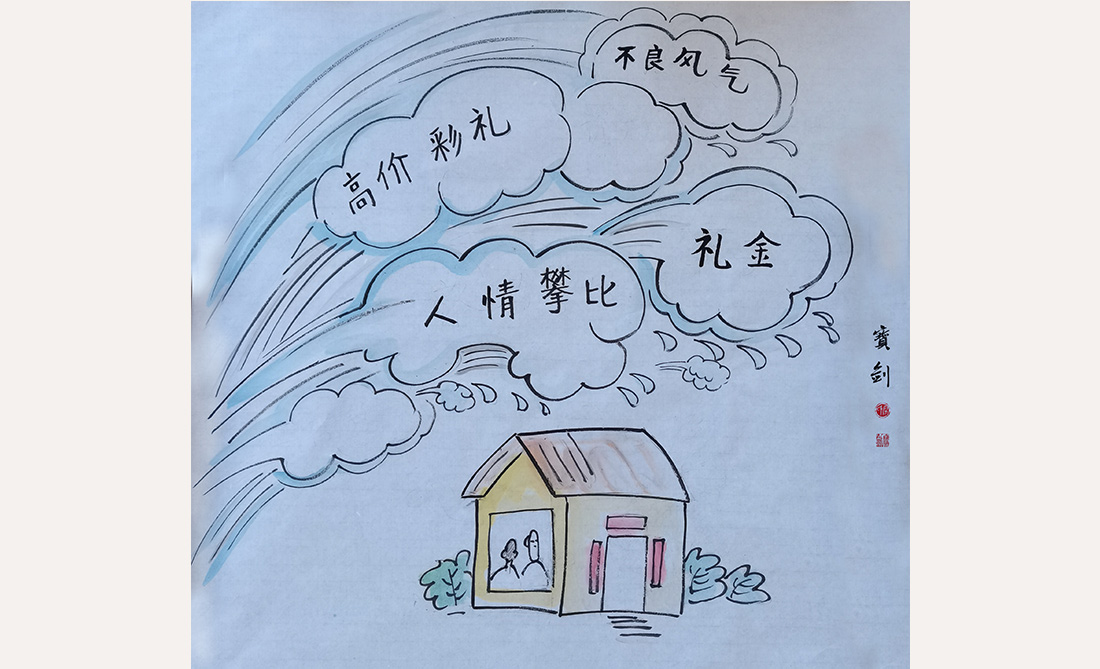 不良风气
高价彩礼
礼金
人情攀比
寳剑